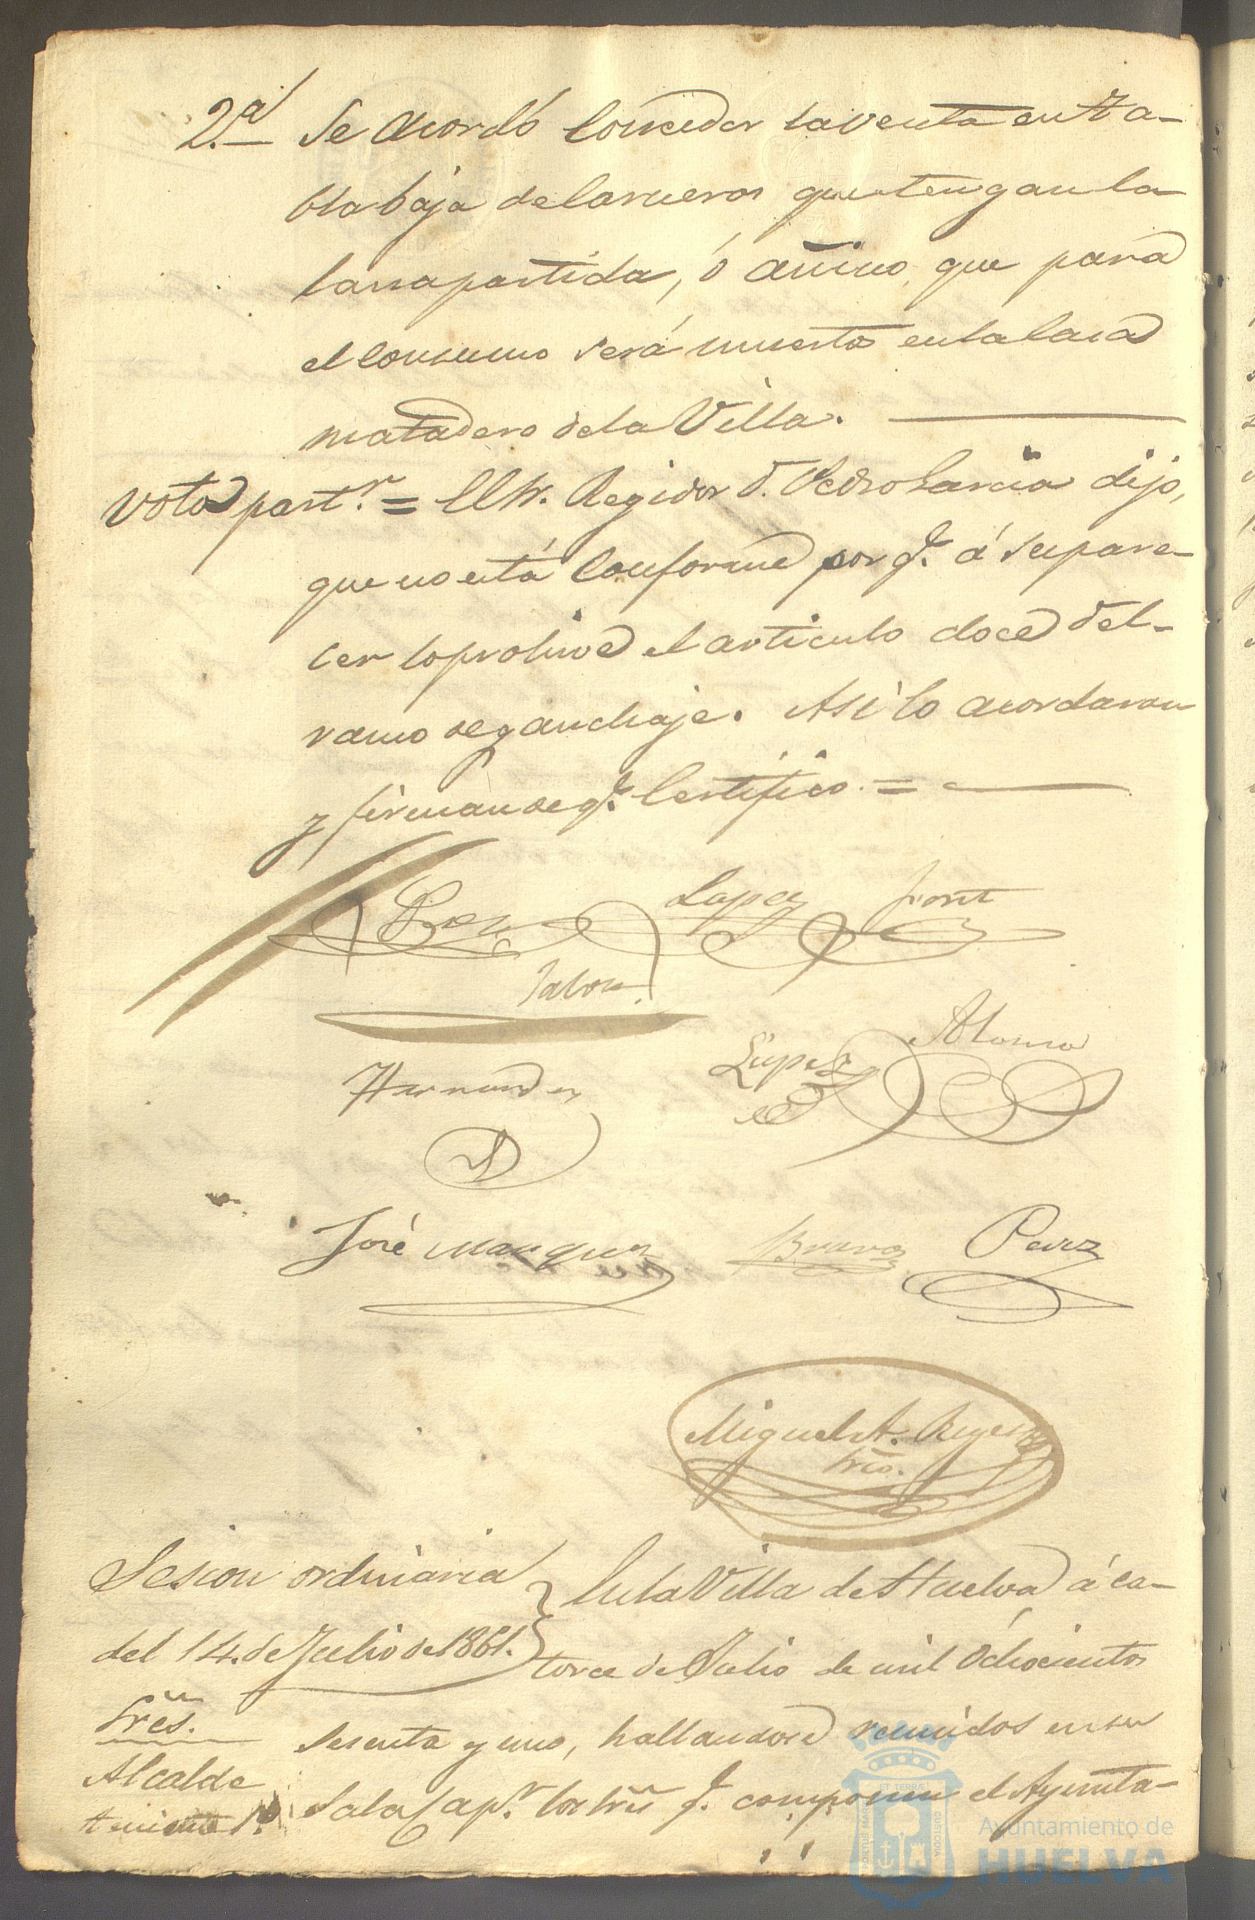 2.ª Se acordó conceder la venta en ta-
bla baja de carneros que tengan la
lana partida, ó anino que para
el consumo será muerto en la casa
matadero de la Villa.
Voto part.r = El Sr. Regidor D. Pedro Garcia dijo,
que no está conforme por q.e á su pare-
cer lo prohive el articulo doce del
ramo de ganchaje. Asi lo acordaron
y firman de q.e Certifico =
Lopez Font
Jalon
Hernandez Lopez Alonso
José Marquez Bravo Perez
Miguel A.
Srio.
Sesion ordinaria
del 14. de Julio de 1861.
En la Villa de Huelva á ca-
torce de Julio de mil ochocientos
Sres.
sesenta y uno, hallandose reunidos en su
Alcalde
Sala Cap.r los Sres q.e componen el Ayunta-
teniente 1.º
Ayuntamiento de
HUELVA